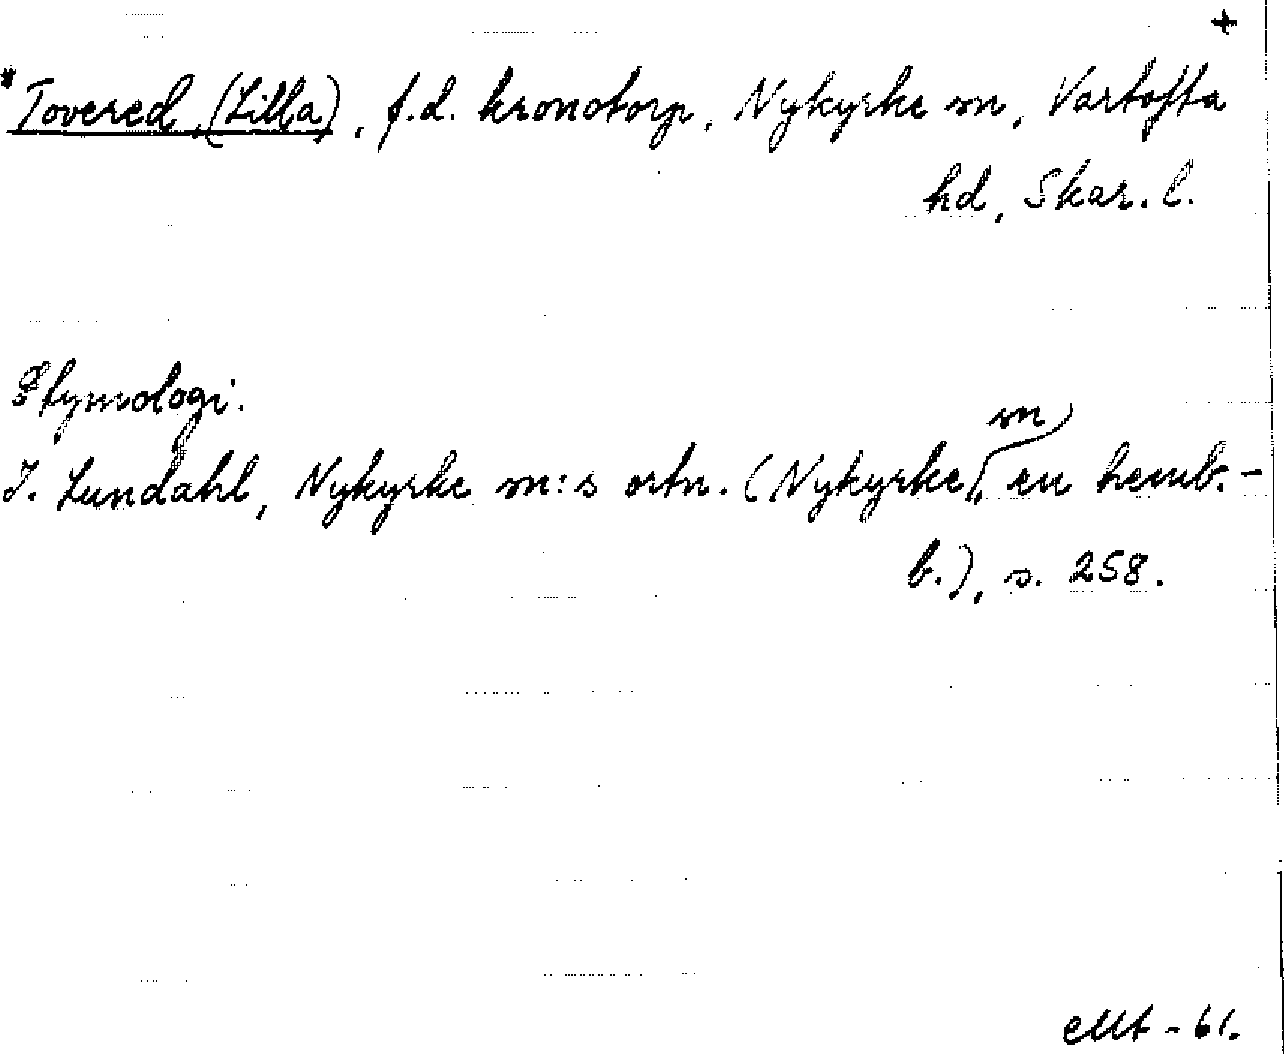 +
*Tovered, (Lilla), f.d. kronotorp, Nykyrke sn, Vartofta
hd, Skar. l.
Etymologi.
I. Lundahl, Nykyrke sn:s ortn. (Nykyrke sn, en hemb.-
b.), s. 258.
EMt - 61.